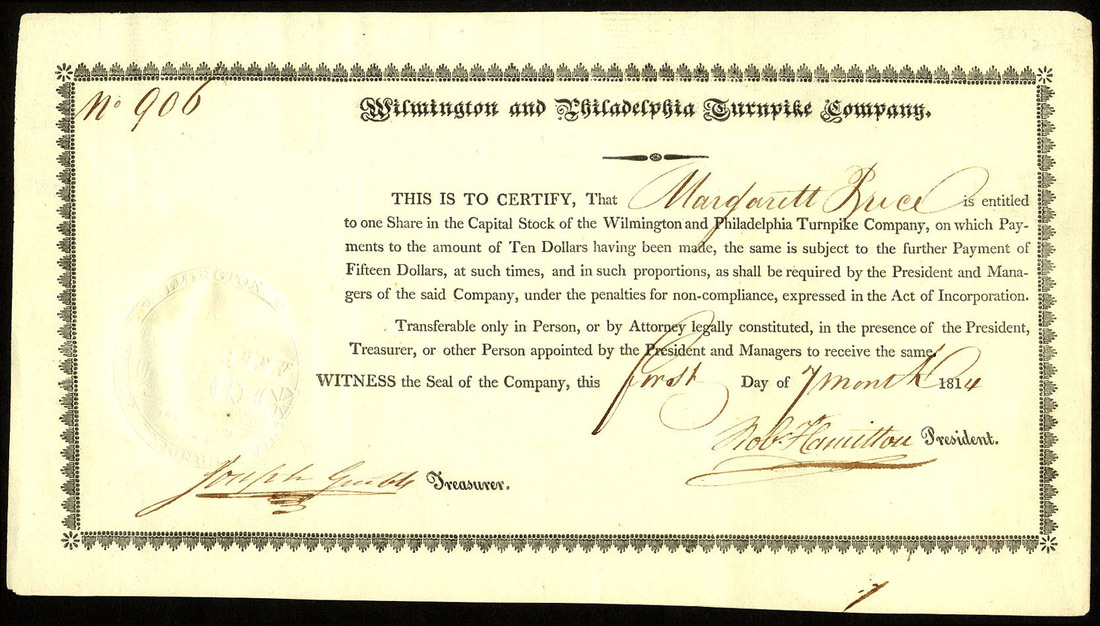 No 906
Wilmington and Philadelphia Turnpike Company.
THIS IS TO CERTIFY, That Margarett Price is entitled
to one Share in the Capital Stock of the Wilmington and Philadelphia Turnpike Company, on which Pay-
ments to the amount of Ten Dollars having been made, the same is subject to the further Payment of
Fifteen Dollars, at such times, and in such proportions, as shall be required by the President and Mana-
gers of the said Company, under the penalties for non-compliance, expressed in the Act of Incorporation.
Transferable only in Person, or by Attorney legally constituted, in the presence of the President,
Treasurer, or other Person appointed by the President and Managers to receive the same.
WITNESS the Seal of the Company, this first Day of 7 month 1814
Rob. Hamilton President.
Joseph Treasurer.
WILMINGTON